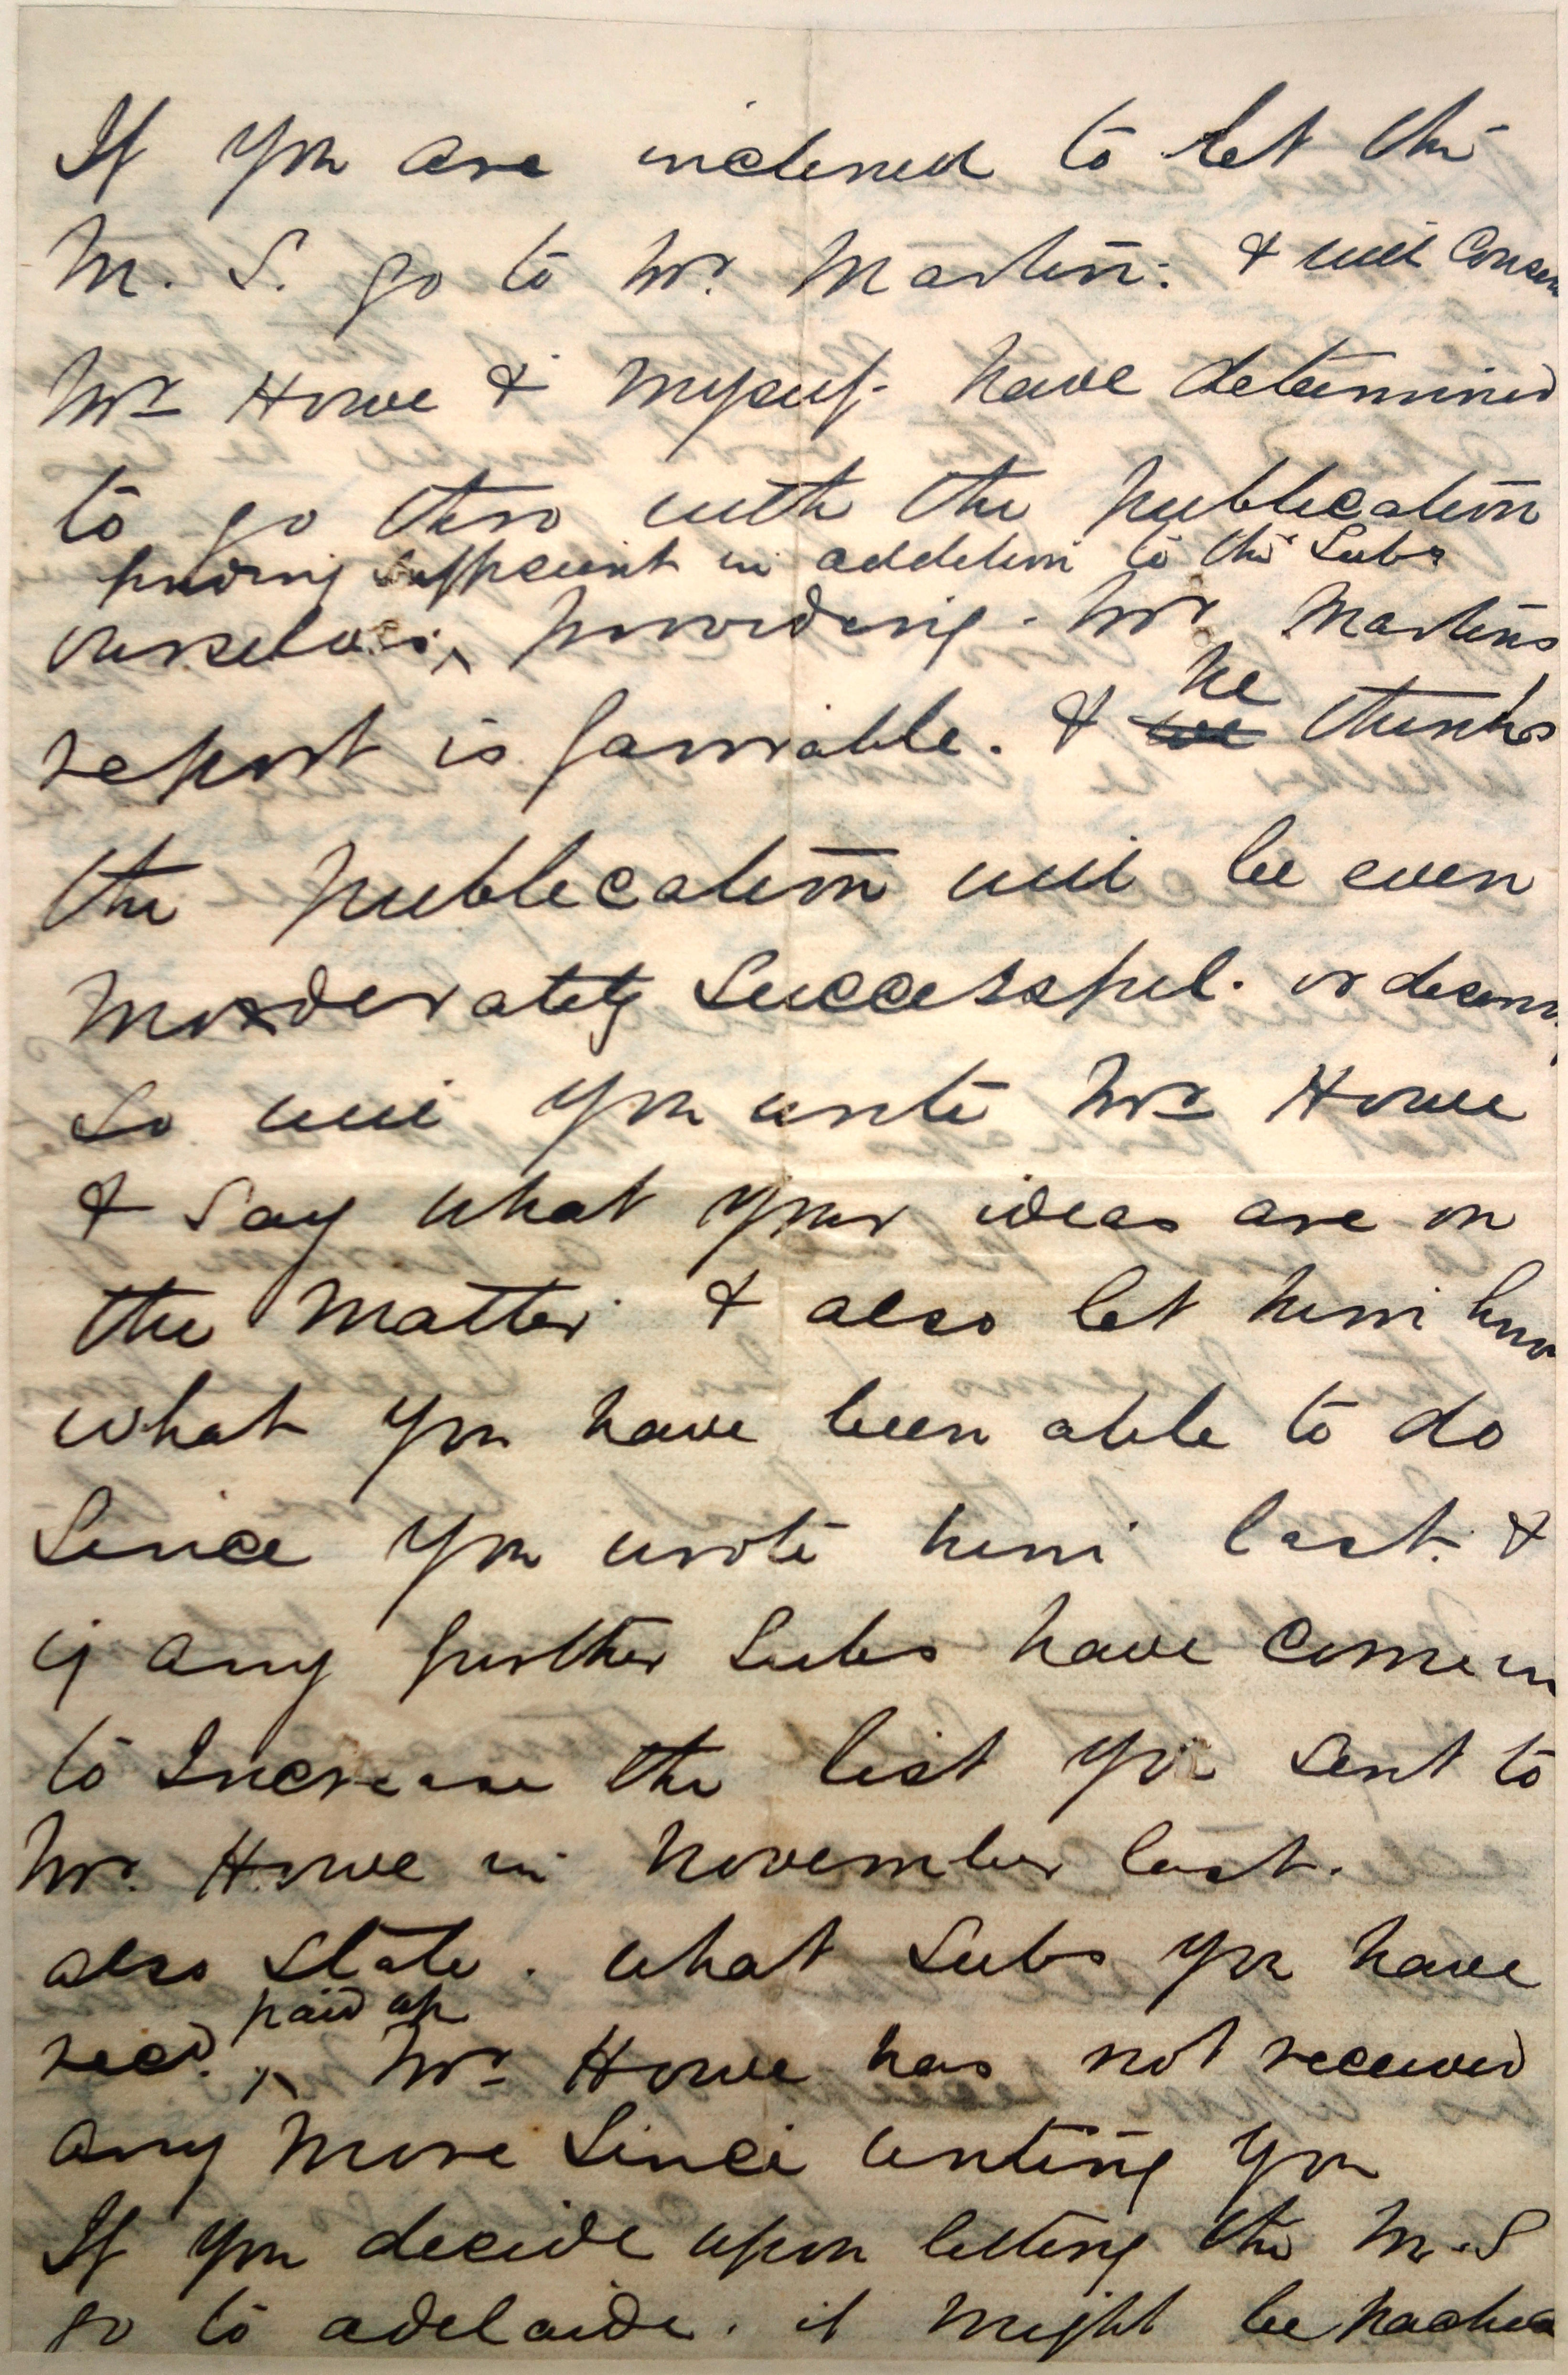 If you are inclined to let the
M. S. go to Mr. Martin: & will Consen
Mr Howe & Myself have determined
to go thro with the publication
finding sufficient in addition to the Subs
ourselves ^ providing. Mr Martins
he
report is favorable. & we thinks
the publication will be even
Moderately Successful. or deserv
So will you write Mr Howe
& Say what your ideas are on
the Matter & also let him know
what you have been able to do
Since you wrote him last. &
if any further Subs have come in
to Increase the list you sent to
Mr. Howe in November last.
also state. what Subs you have
paid up
recd. ^ Mr Howe has not received
any More Since writing you
If you decide upon letting the M.S
go to adelaide. it Might be packed